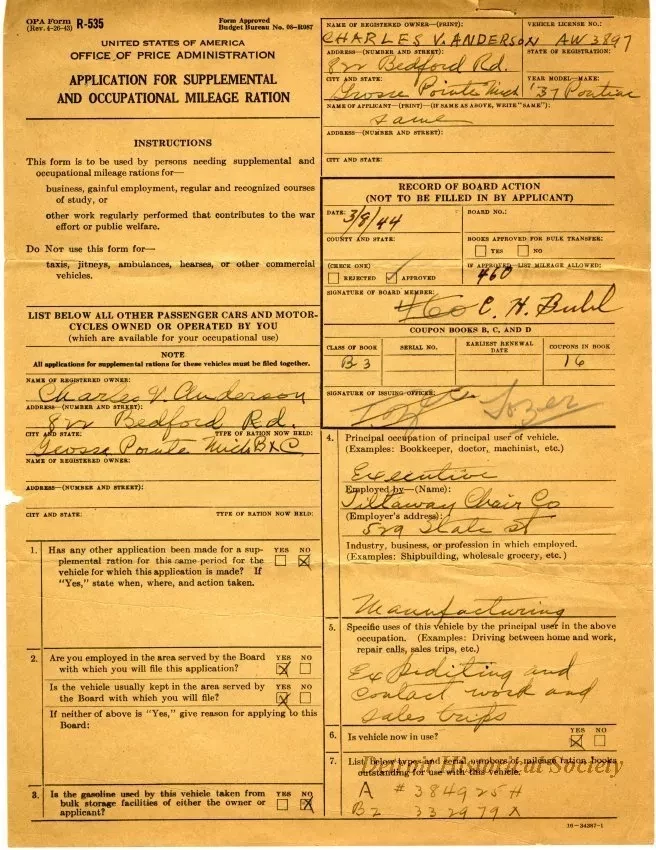 OPA Form R-535
(Rev. 4-26-43)
Form Approved
Budget Bureau No. 08-R087
UNITED STATES OF AMERICA
OFFICE OF PRICE ADMINISTRATION
APPLICATION FOR SUPPLEMENTAL
AND OCCUPATIONAL MILEAGE RATION
INSTRUCTIONS
This form is to be used by persons needing supplemental and
occupational mileage rations for—
business, gainful employment, regular and recognized courses
of study, or
other work regularly performed that contributes to the war
effort or public welfare.
Do NOT use this form for—
taxis, jitneys, ambulances, hearses, or other commercial
vehicles.
LIST BELOW ALL OTHER PASSENGER CARS AND MOTOR-
CYCLES OWNED OR OPERATED BY YOU
(which are available for your occupational use)
NOTE
All applications for supplemental rations for these vehicles must be filed together.
NAME OF REGISTERED OWNER:
Charles V. Anderson
ADDRESS—(NUMBER AND STREET):
822 Bedford Rd.
CITY AND STATE: TYPE OF RATION NOW HELD:
Grosse Pointe Mich B&C
NAME OF REGISTERED OWNER:
ADDRESS—(NUMBER AND STREET):
CITY AND STATE: TYPE OF RATION NOW HELD:
1. Has any other application been made for a sup- YES NO
plemental ration for this same period for the
vehicle for which this application is made? If
"Yes," state when, where, and action taken.
2. Are you employed in the area served by the Board YES NO
with which you will file this application?
Is the vehicle usually kept in the area served by YES NO
the Board with which you will file?
If neither of above is "Yes," give reason for applying to this
Board:
3. Is the gasoline used by this vehicle taken from YES NO
bulk storage facilities of either the owner or
applicant?
NAME OF REGISTERED OWNER—(PRINT): VEHICLE LICENSE NO.:
CHARLES V. ANDERSON AW 3897
ADDRESS—(NUMBER AND STREET): STATE OF REGISTRATION:
822 Bedford Rd.
CITY AND STATE: YEAR MODEL—MAKE:
Grosse Pointe Mich '37 Pontiac
NAME OF APPLICANT—(PRINT)—(IF SAME AS ABOVE, WRITE "SAME"):
same
ADDRESS—(NUMBER AND STREET):
CITY AND STATE:
RECORD OF BOARD ACTION
(NOT TO BE FILLED IN BY APPLICANT)
DATE: 3/8/44 BOARD NO.:
COUNTY AND STATE: BOOKS APPROVED FOR BULK TRANSFER:
YES NO
(CHECK ONE) IF APPROVED—LIST MILEAGE ALLOWED:
REJECTED APPROVED 460
SIGNATURE OF BOARD MEMBER:
460 C. H. Buhl
COUPON BOOKS B, C, AND D
CLASS OF BOOK SERIAL NO. EARLIEST RENEWAL DATE COUPONS IN BOOK
B3 16
SIGNATURE OF ISSUING OFFICER:
Lozer
4. Principal occupation of principal user of vehicle.
(Examples: Bookkeeper, doctor, machinist, etc.)
Executive
Employed by—(Name):
Tillaway Chair Co
(Employer's address):
529 State St
Industry, business, or profession in which employed.
(Examples: Shipbuilding, wholesale grocery, etc.)
Manufacturing
5. Specific uses of this vehicle by the principal user in the above
occupation. (Examples: Driving between home and work,
repair calls, sales trips, etc.)
Expediting and
contact work and
sales trips
6. Is vehicle now in use? YES NO
7. List below types and serial numbers of mileage ration books
outstanding for use with this vehicle.
Historical Society
A # 384925H
B2 332979X
16—34387-1